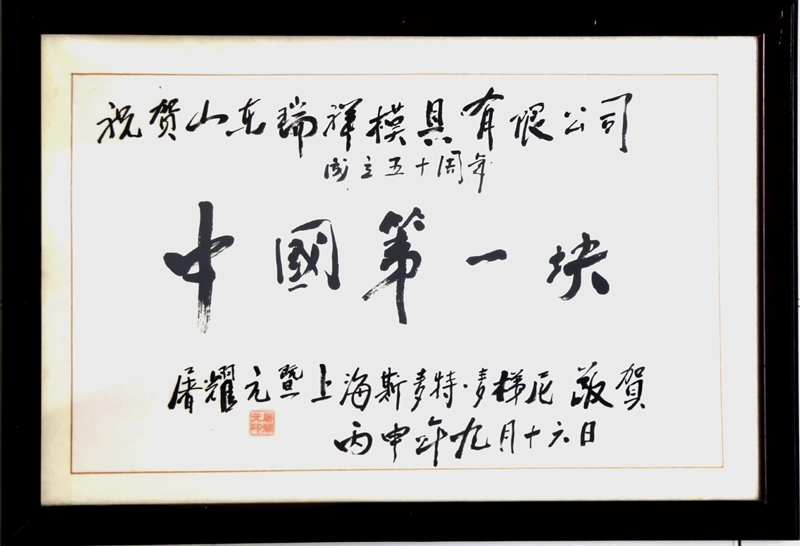 祝贺山东瑞祥模具有限公司
成立五十周年
中國第一块
屠耀元暨上海斯麦特·麦梯尼敬賀
丙申年九月十六日